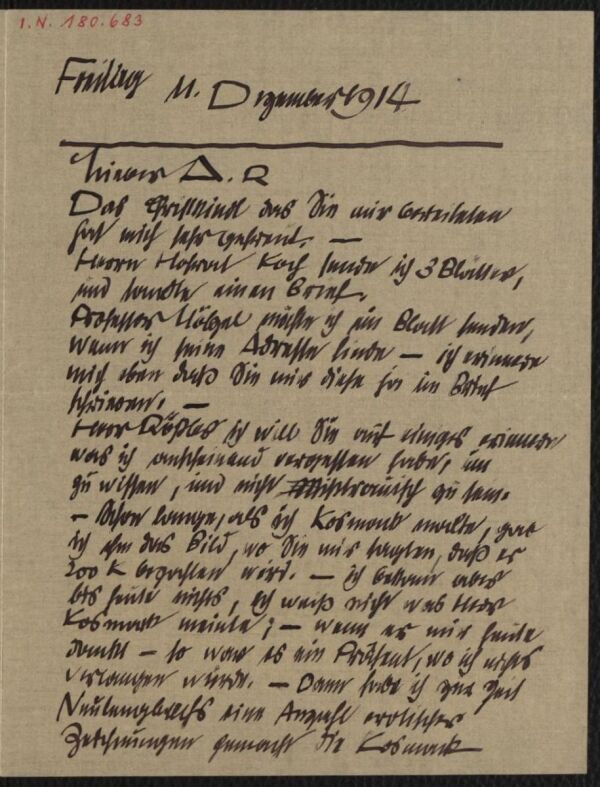 I.N. 180.683
Freitag 11. Dezember 1914
Lieber A. R
Das Christkindl das Sie mir bereiteten
hat mich sehr gefreut. —
Herrn Hofrat Koch sende ich 3 Blätter,
und sandte einen Brief.
Professor Hölzel möchte ich ein Blatt senden,
wenn ich seine Adresse finde — ich erinnere
mich eben daß Sie mir diese ja im Brief
schrieben. —
Herr Rößler ich will Sie auf einiges erinnern
was ich anscheinend vergessen habe, um
zu wissen, und nicht Mißtrauisch zu sein.
– Schon lange, als ich Kosmack malte, gab
ich ihm das Bild, wo Sie mir sagten, daß es
200 K bezahlen wird. — ich bekam aber
bis heute nichts, ich weiß nicht was Herr
Kosmack meinte; – wenn er mir heute
dankt – so war es ein Präsent, wo ich nichts
verlangen würde. – Dann habe ich zur Zeit
Neulengbachs eine Anzahl erotischer
Zeichnungen gemacht die Kosmack